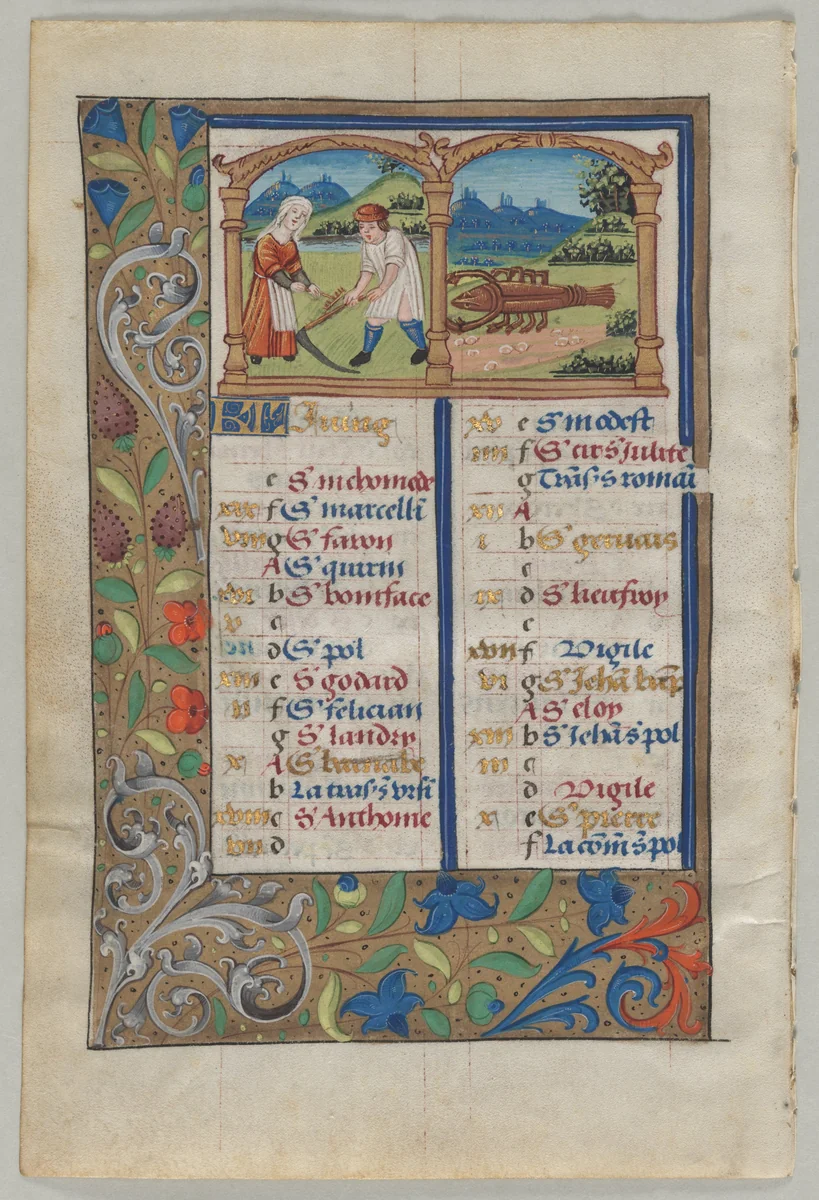 KL Juing
e Sʳ nichomede
xix f Sʳ marcelli
viii g Sʳ faron
A Sʳ quirin
xvi b Sʳ boniface
v c
d Sʳ pol
xiii e Sʳ godard
ii f Sʳ felician
g Sʳ landry
x A Sʳ barnabe
b La trās. s̄ ursi
xviii c Sʳ Anthoine
vii d
xv e Sʳ modest
iiii f Sʳ cir s̄ Julite
g Trās. s̄ romaī
xii A
i b Sʳ geruais
c
ix d Sʳ lieufroy
e
xvii f Vigile
vi g Sʳ Jehā
A Sʳ eloy
xiiii b Sʳ Jehā s̄ pol
iii c
d Vigile
xi e Sʳ pierre
f La cōm̄ s̄ pol